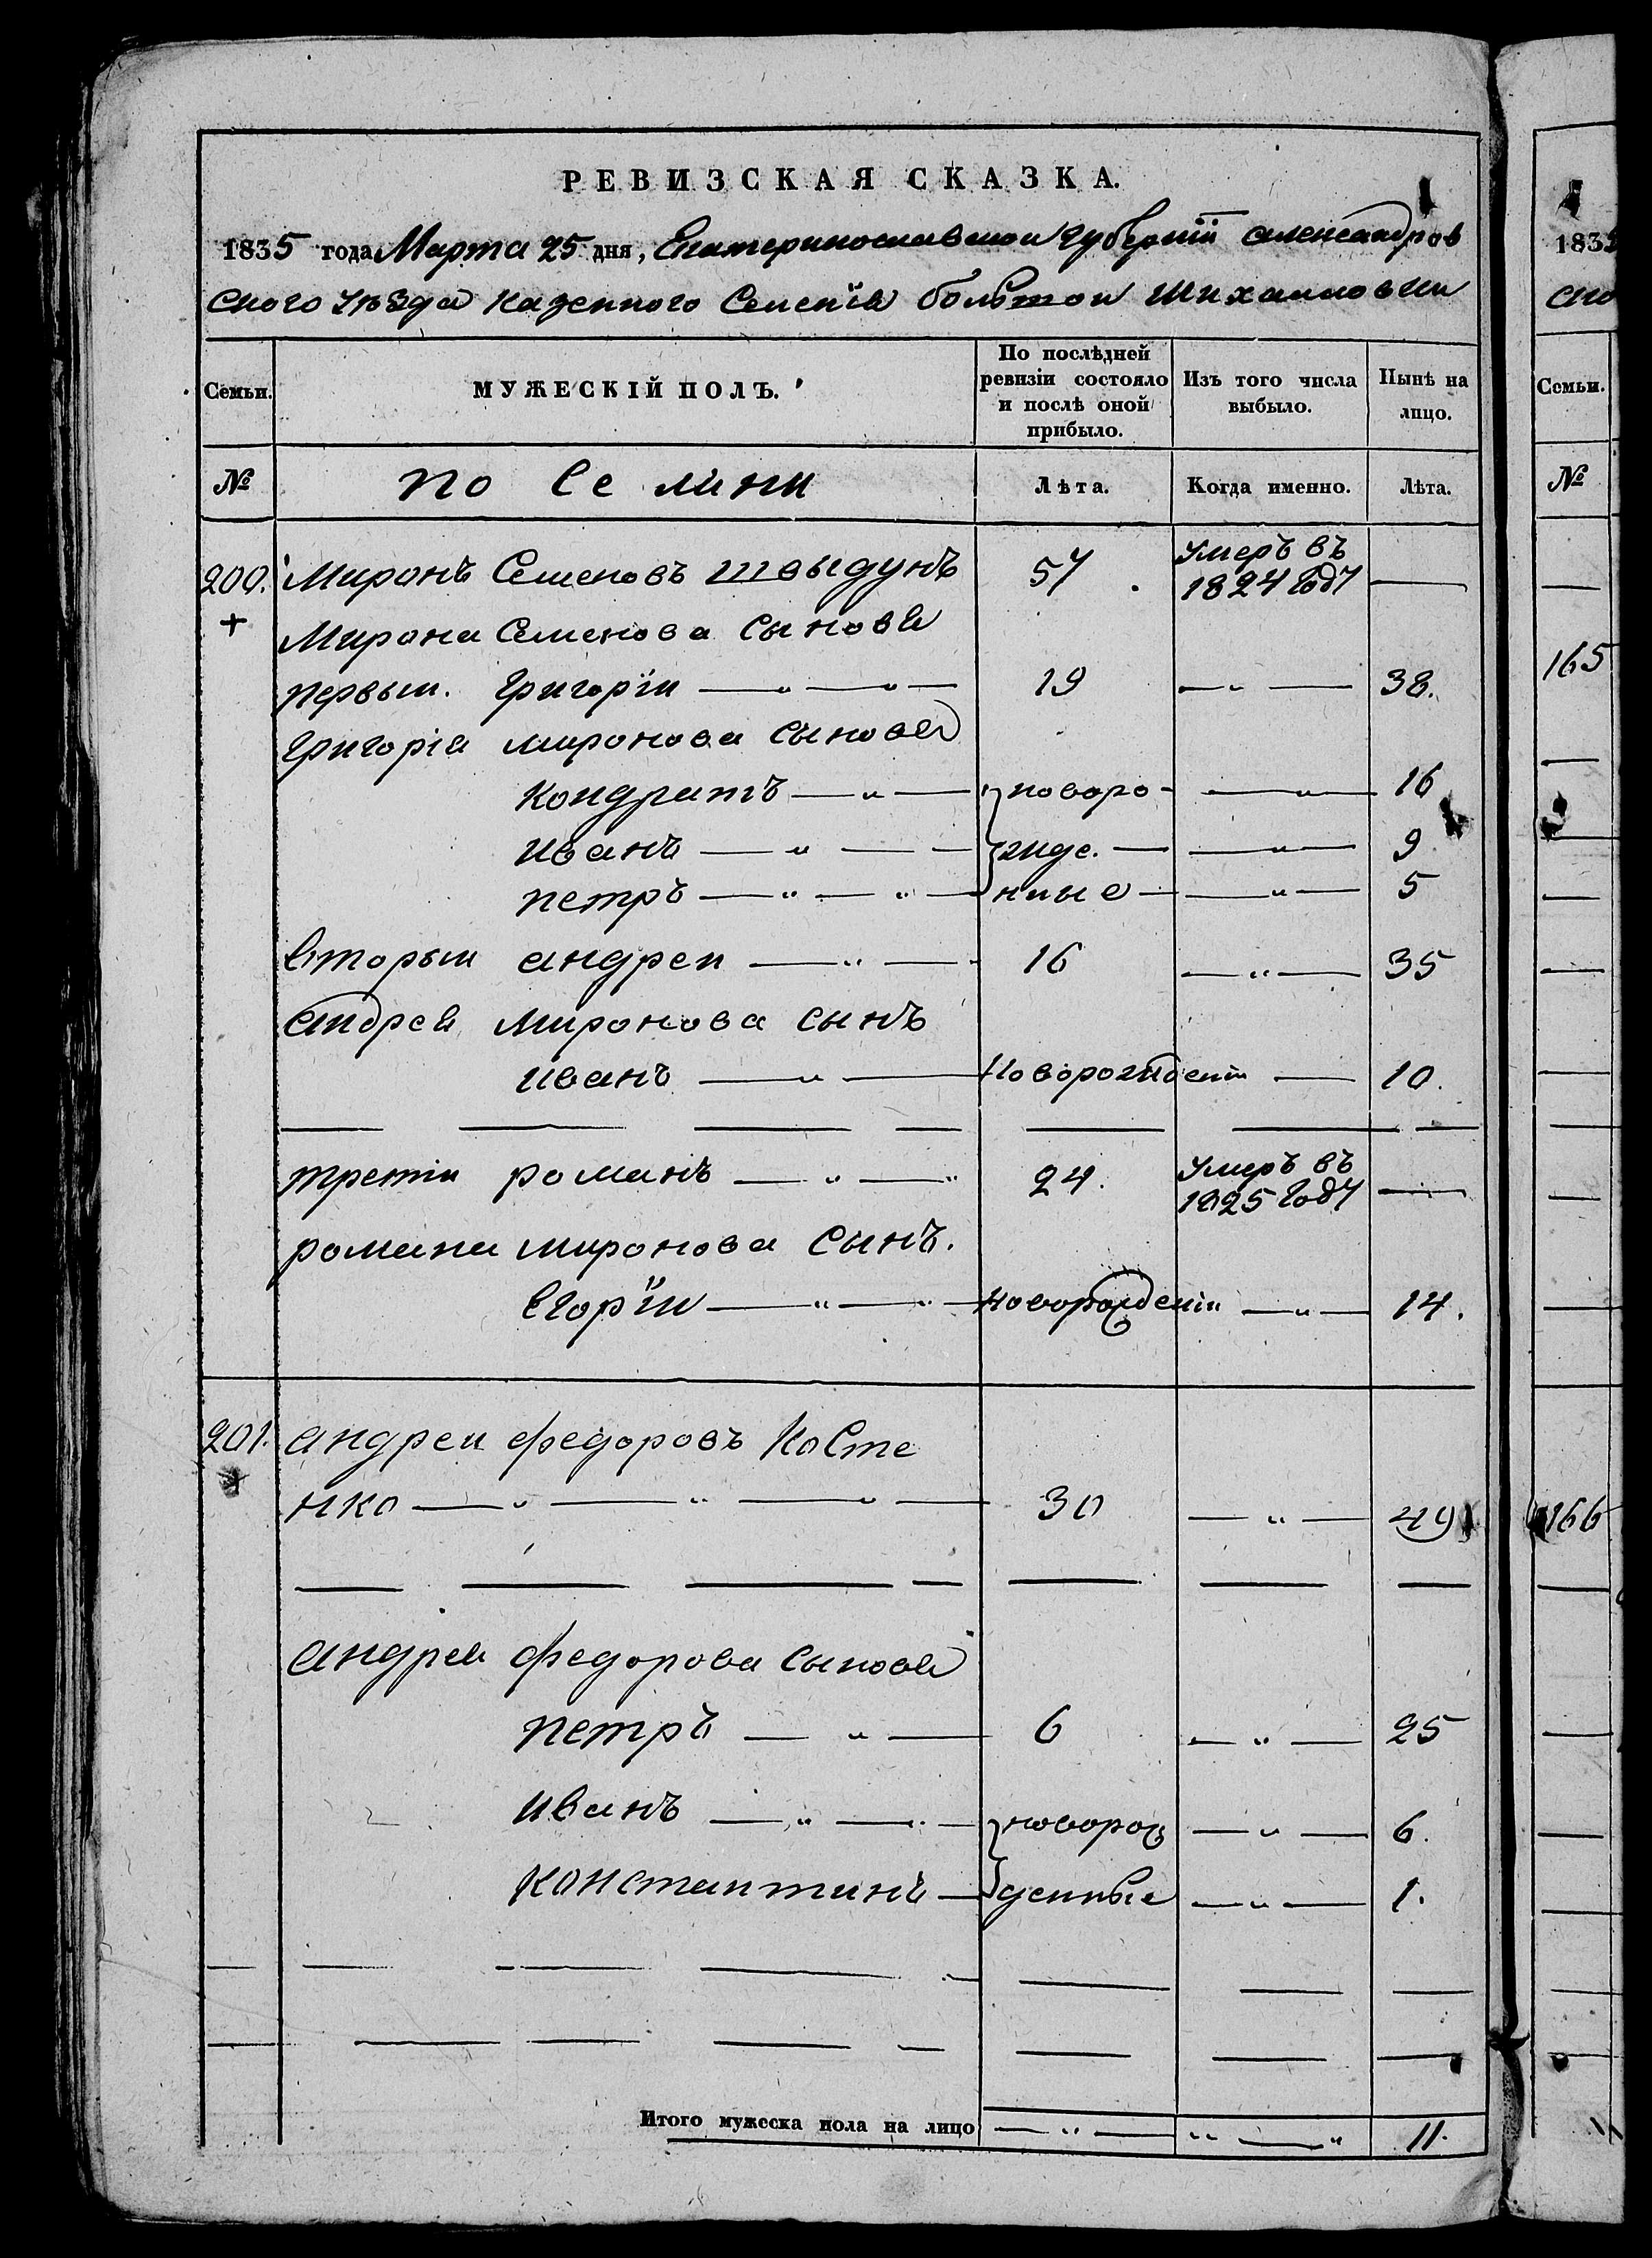 РЕВИЗСКАЯ СКАЗКА.
1835 года Марта 25 дня, Екатеринославской губернїи александров
ского уѣзда казенного Селенїя большой Михайловки
Семьи.
МУЖЕСКІЙ ПОЛЪ.
По послѣдней ревизіи состояло и послѣ оной прибыло.
Изъ того числа выбыло.
Нынѣ на лицо.
№
Лѣта.
Когда именно.
Лѣта.
200. Миронъ Семеновъ швыдунъ 57. умеръ въ 1824 году
+ Мирона Семенова сыновя
первыи. григорїи 19 38.
григорія миронова сыновя
кондратъ новоро 16
иванъ жде. 9
петръ нные 5
вторыи андреи 16 35
андрея миронова сынъ
иванъ новорождени 10.
третіи романъ 24. умеръ въ 1825 году
романа миронова сынъ.
егорїи новорождени 14.
201. андреи федоровъ косте
нко 30 49
андрея федорова сыновя
петръ 6 25
иванъ новорож 6.
константинъ денные 1.
Итого мужеска пола на лицо 11.
183
ско
Семьи.
№
165
166